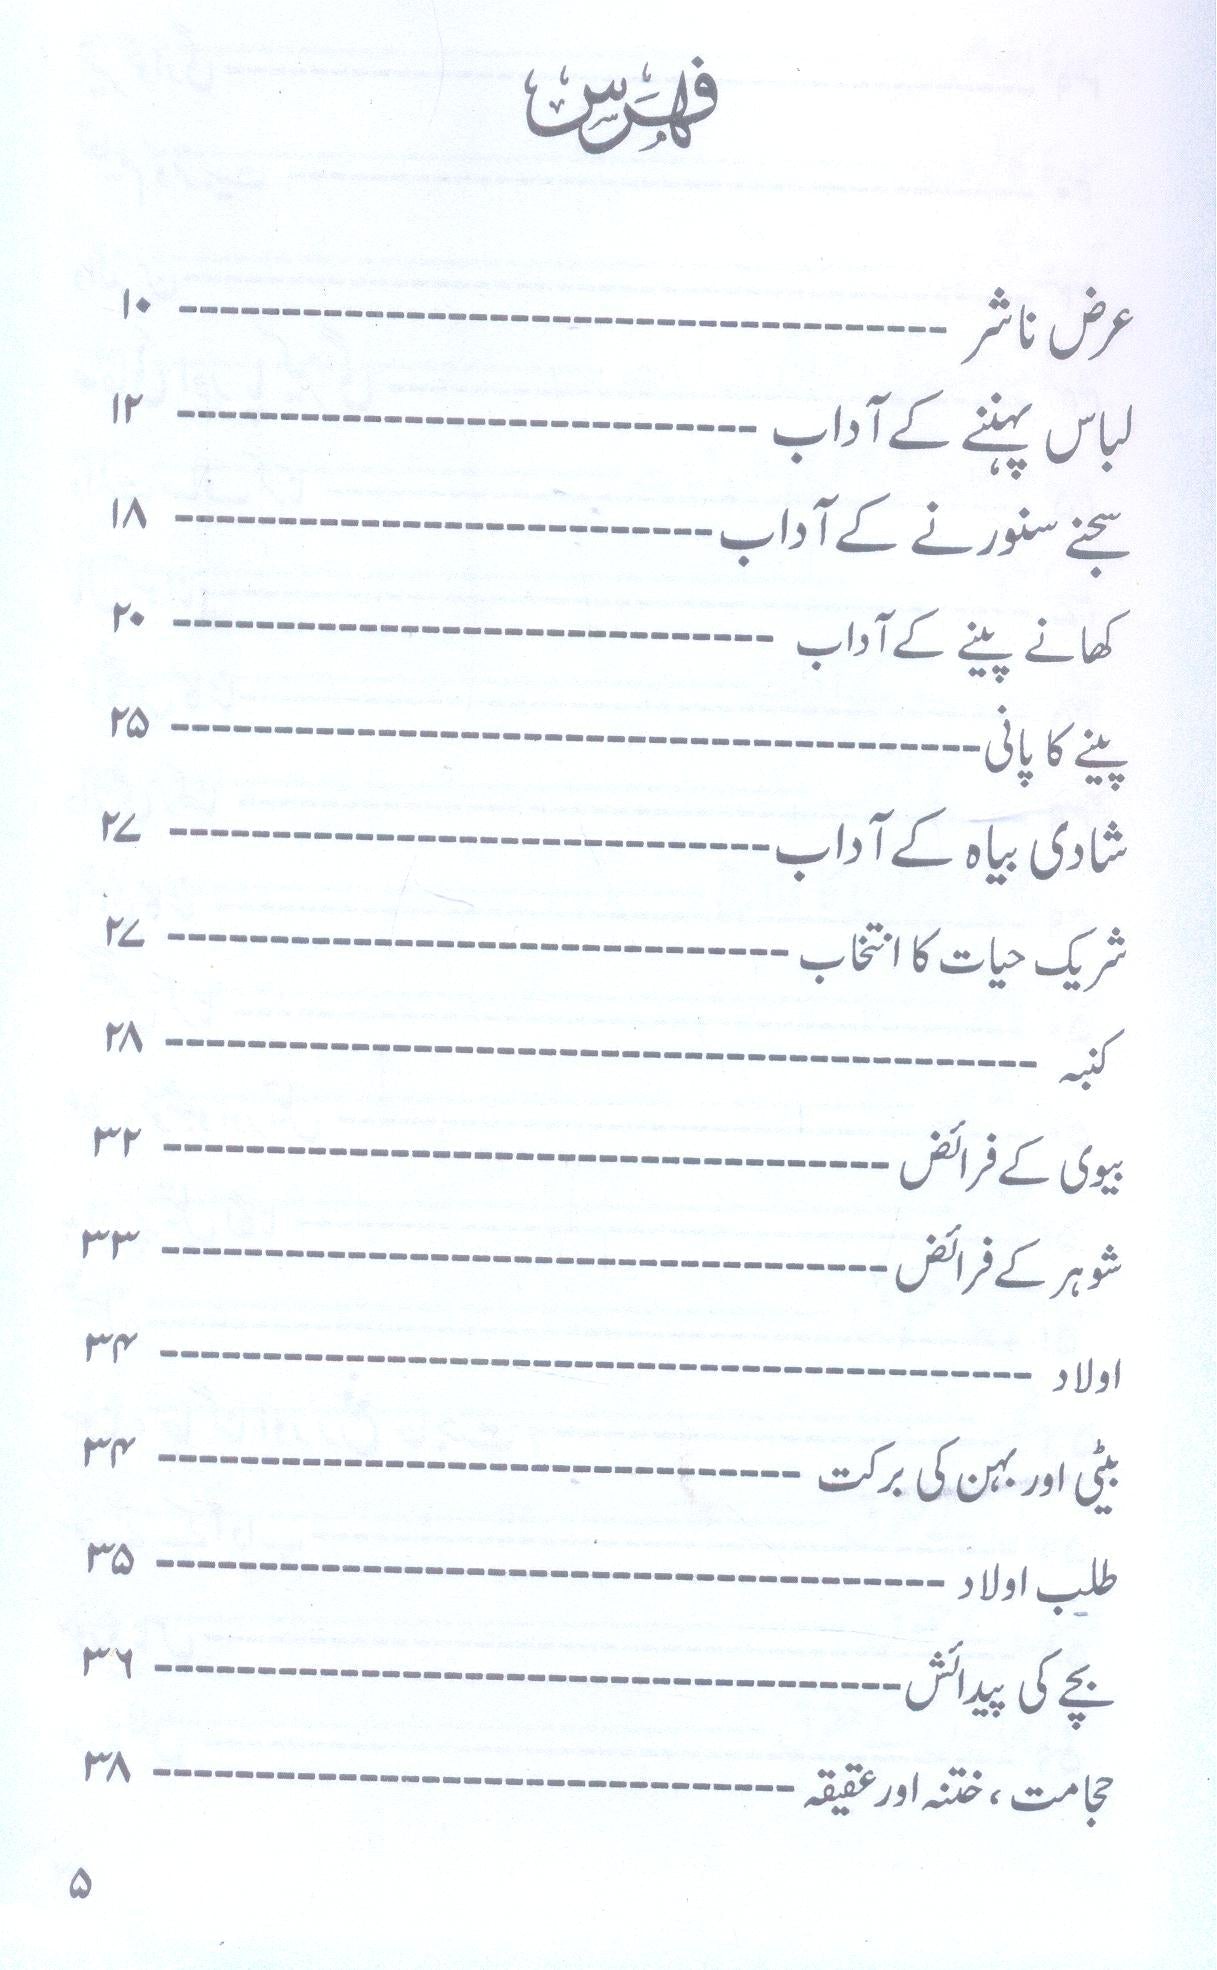 فہرس
عرض ناشر ------------------------------------- ۱۰
لباس پہننے کے آداب ---------------------------- ۱۲
سجنے سنورنے کے آداب -------------------------- ۱۸
کھانے پینے کے آداب ----------------------------- ۲۰
پینے کا پانی --------------------------------------- ۲۵
شادی بیاہ کے آداب ----------------------------- ۲۷
شریک حیات کا انتخاب ------------------------------ ۲۷
کنبہ ------------------------------------------ ۲۸
بیوی کے فرائض ----------------------------------- ۳۲
شوہر کے فرائض ----------------------------------- ۳۳
اولاد ------------------------------------------ ۳۴
بیٹی اور بہن کی برکت ------------------------------- ۳۴
طلب اولاد -------------------------------------- ۳۵
بچے کی پیدائش ------------------------------------ ۳۶
حجامت، ختنہ اور عقیقہ ------------------------------- ۳۸
۵